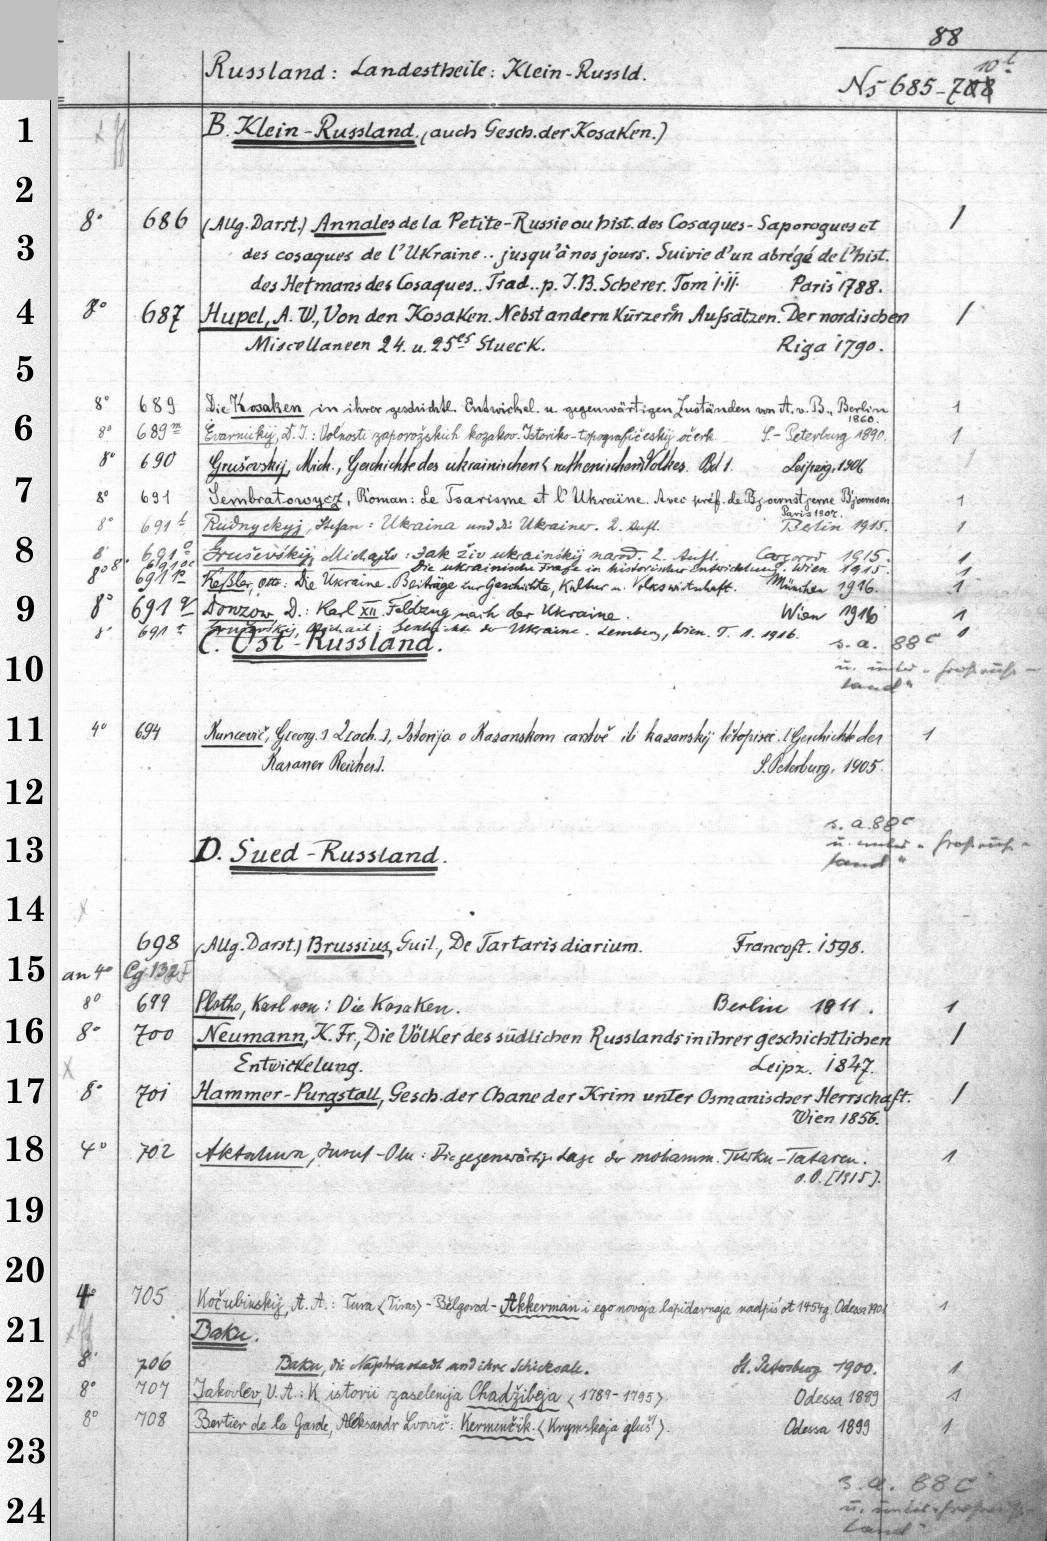 88
Russland: Landestheile: Klein-Russld.
No 685-708 10 t
1
B. Klein-Russland. (auch Gesch. der Kosaken.)
2
8° 686 (Allg. Darst.) Annales de la Petite-Russie ou hist. des Cosaques-Saporogues et 1
3
des cosaques de l'Ukraine .. jusqu'à nos jours. Suivie d'un abrégé de l'hist.
des Hetmans des Cosaques.. Trad.. p. J.B. Scherer. Tom I·II. Paris 1788.
4
8° 687 Hupel, A. W., Von den Kosaken. Nebst andern kürzern Aufsätzen. Der nordischen 1
Miscellaneen 24. u. 25es Stueck. Riga 1790.
5
8° 689 Die Kosaken in ihrer geschichtl. Entwickel. u. gegenwärtigen Zuständen von A. v. B., Berlin 1860. 1
6
8° 689m Evarnickij, D. I.: Volnosti zaporožskich kozakov. Istoriko-topografičeskij očerk. S.-Peterburg 1890. 1
8° 690 Gruševskij, Mich., Geschichte des ukrainischen (ruthenischen) Volkes. Bd 1. Leipzig, 1906 1
7
8° 691 Sembratowycz, Roman: Le Tsarisme et l'Ukraïne. Avec préf. de Bjoernstjerne Bjornson. Paris 1907. 1
8° 691 t Rudnyckyj, Stefan: Ukraina und die Ukrainer. 2. Aufl. Berlin 1915. 1
8
8° 691 Gruševśkij, Michajlo: Jak živ ukrainśkij narod. 2. Aufl. Cargorod 1915. 1
8° Die ukrainische Frage in historischer Entwicklung. Wien 1915. 1
8° 691 p Keßler, Otto: Die Ukraine. Beiträge zur Geschichte, Kultur u. Volkswirtschaft. München 1916. 1
9
8° 691 q Donzow, D.: Karl XII. Feldzug nach der Ukraine. Wien 1916 1
8° 691 Michael: der Ukraine. Lemberg, Wien. T. 1. 1916. 1
C. Ost-Russland. s. a. 88 c
10
u. unter "
land"
11
4° 694 Kuncevič, G[eorg.] Z[ach.], Istorija o Kazanskom carstvě ili kazanskij lětopisec. [Geschichte des 1
Kasaner Reiches]. S. Peterburg, 1905.
12
s. a. 88 c
13
D. Sued-Russland.
u. unter "
land"
14
698 (Allg. Darst.) Brussius, Guil., De Tartaris diarium. Francoft. 1598.
15
an 4°
8° 699 Plotho, Karl von: Die Kosaken. Berlin 1811. 1
16
8° 700 Neumann, K. Fr., Die Völker des südlichen Russlands in ihrer geschichtlichen 1
Entwickelung. Leipz. 1847.
17
8° 701 Hammer-Purgstall, Gesch. der Chane der Krim unter Osmanischer Herrschaft. 1
Wien 1856.
18
4° 702 Aktschura, Jusuf-Olu: Die gegenwärtige Lage der mohamm. Turku-Tataren. 1
o. O. [1915].
19
20
4° 705 Kočubinskij, A. A.: Tura (Tiras)-Bělgorod-Akkerman i ego novaja lapidarnaja nadpiś ot 1454g. Odessa 1901 1
21
Baku.
8° 706 Baku, die Naphtastadt und ihre Schicksale. St. Petersburg 1900. 1
22
8° 707 Jakovlev, V. A.: K istorii zaselenija Chadžibeja (1789-1795) Odessa 1889 1
8° 708 Bertier de la Garde, Aleksandr Lvovič: Kermenčik. (Krymskaja gluš'). Odessa 1899 1
23
24
s. a. 88 c
u. unter
land"